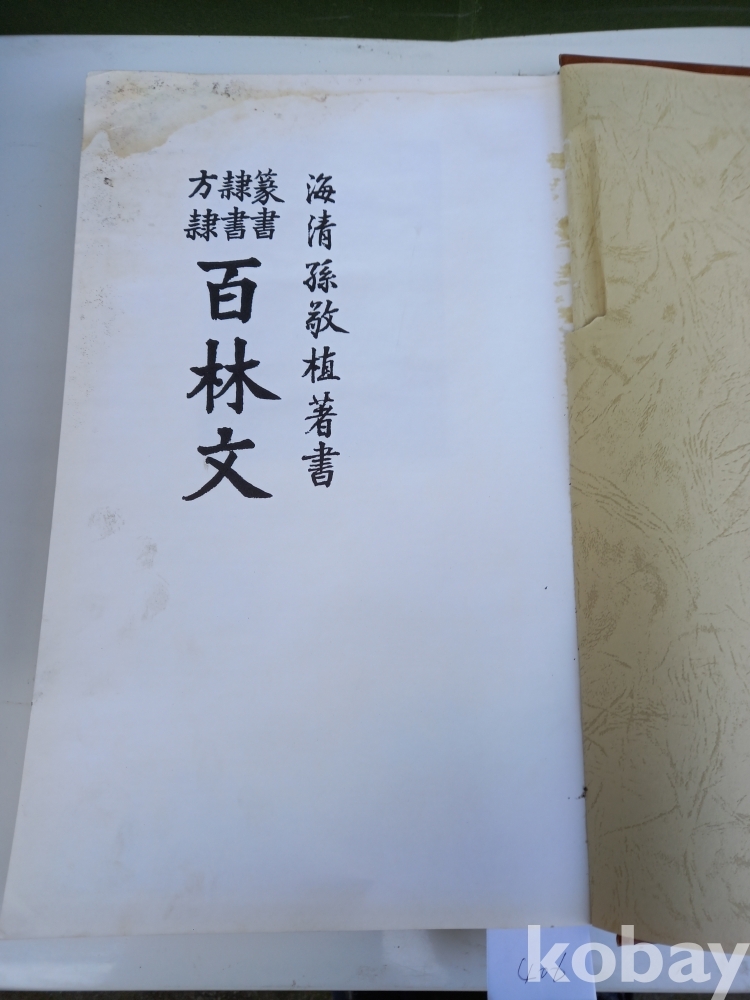 海清孫敬植著書
篆書
隸書
方隸
百林文
kobay